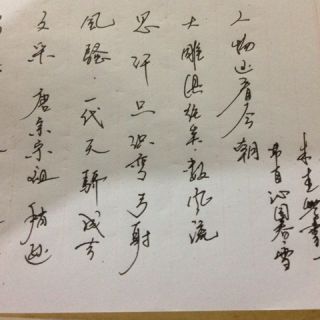 文采唐宗宋祖稍逊
风骚一代天骄成吉
思汗只识弯弓射
大雕俱往矣数风流
人物还看今朝
书自沁园春雪